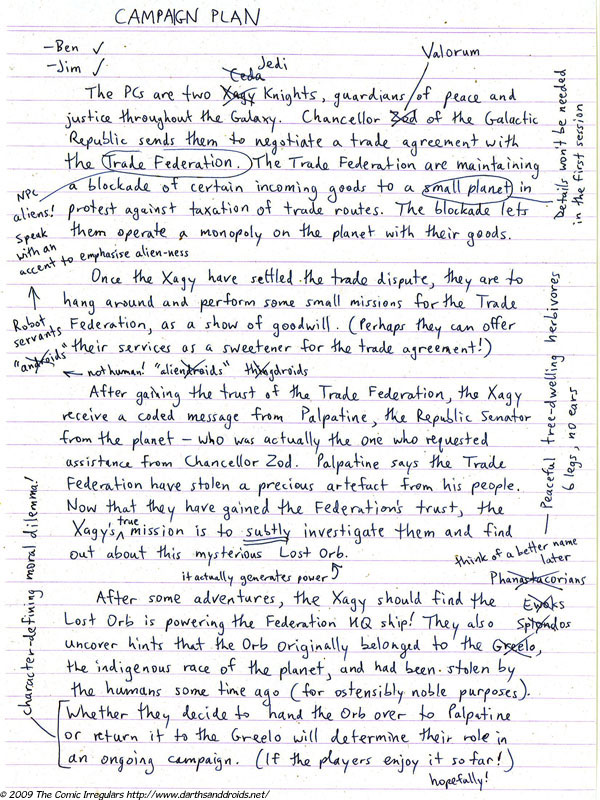 CAMPAIGN PLAN
–Ben ✓
–Jim ✓
Jedi
Ceda
Valorum
The PCs are two Xagy Knights, guardians of peace and
justice throughout the Galaxy. Chancellor Zod of the Galactic
Republic sends them to negotiate a trade agreement with
the Trade Federation. The Trade Federation are maintaining
a blockade of certain incoming goods to a small planet in
protest against taxation of trade routes. The blockade lets
them operate a monopoly on the planet with their goods.
Details won't be needed
in the first session
NPC
aliens!
Speak
with an
accent to emphasise alien-ness
Once the Xagy have settled the trade dispute, they are to
hang around and perform some small missions for the Trade
Federation, as a show of goodwill. (Perhaps they can offer
their services as a sweetener for the trade agreement!)
Robot
servants
"androids"
not human! "aliendroids" thingdroids
After gaining the trust of the Trade Federation, the Xagy
receive a coded message from Palpatine, the Republic Senator
from the planet – who was actually the one who requested
assistance from Chancellor Zod. Palpatine says the Trade
Federation have stolen a precious artefact from his people.
Now that they have gained the Federation's trust, the
Xagy's true mission is to subtly investigate them and find
out about this mysterious Lost Orb.
it actually generates power
Peaceful tree-dwelling herbivores
6 legs, no ears
think of a better name
later
Phanastacorians
Ewoks
Splondos
After some adventures, the Xagy should find the
Lost Orb is powering the Federation HQ ship! They also
uncover hints that the Orb originally belonged to the Greelo,
the indigenous race of the planet, and had been stolen by
the humans some time ago (for ostensibly noble purposes).
Whether they decide to hand the Orb over to Palpatine
or return it to the Greelo will determine their role in
an ongoing campaign. (If the players enjoy it so far!)
hopefully!
character-defining moral dilemma!
© 2009 The Comic Irregulars http://www.darthsanddroids.net/